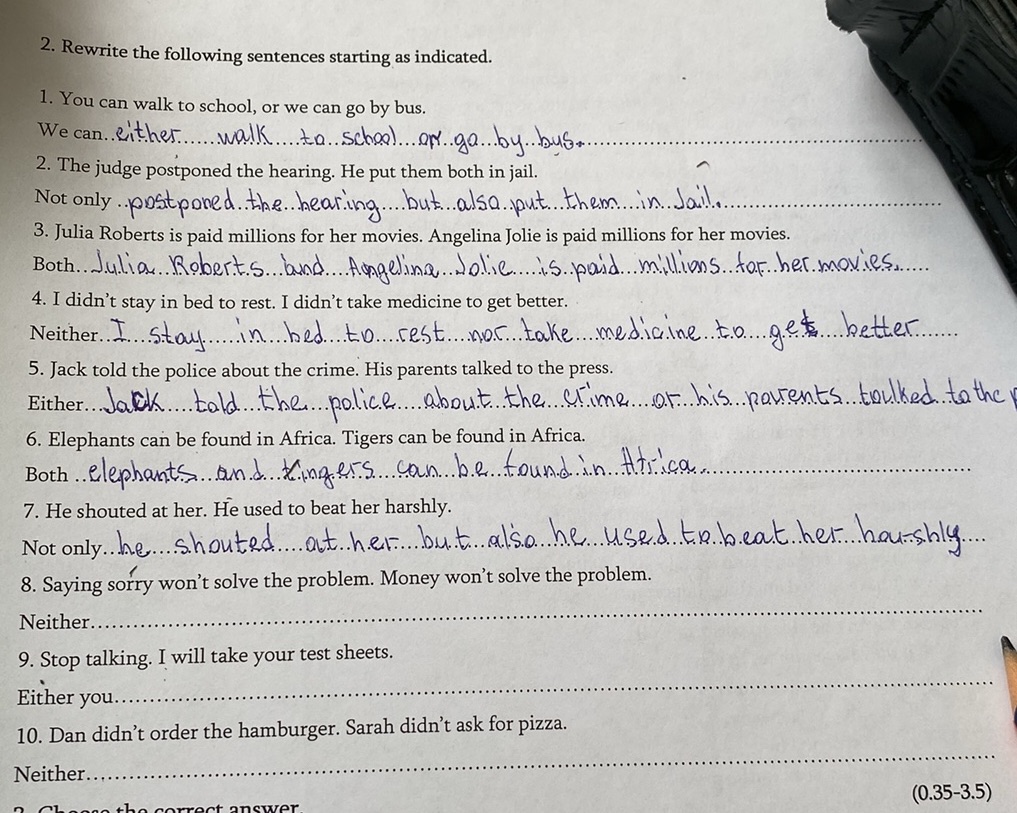 2. Rewrite the following sentences starting as indicated.
1. You can walk to school, or we can go by bus.
We can..either......walk....to..school...or..go...by..bus.
2. The judge postponed the hearing. He put them both in jail.
Not only ..postponed..the..hearing...but..also.put...them...in..Jail.
3. Julia Roberts is paid millions for her movies. Angelina Jolie is paid millions for her movies.
Both...Julia..Roberts...and...Angelina..Jolie....is..paid...millions..for.her.movies.
4. I didn't stay in bed to rest. I didn't take medicine to get better.
Neither..I...stay......in...bed..to...rest...nor..take...medicine..to...get...better
5. Jack told the police about the crime. His parents talked to the press.
Either...Jack....told..the...police....about..the..crime...or..his..parents..talked..to the
6. Elephants can be found in Africa. Tigers can be found in Africa.
Both ..elephants...and..tingers...can...be..found..in..Africa.
7. He shouted at her. He used to beat her harshly.
Not only..he...shouted....at..her...but..also..he...used..to.beat..her..harshly
8. Saying sorry won't solve the problem. Money won't solve the problem.
Neither
9. Stop talking. I will take your test sheets.
Either you
10. Dan didn't order the hamburger. Sarah didn't ask for pizza.
Neither
(0.35-3.5)
Choose the correct answer.